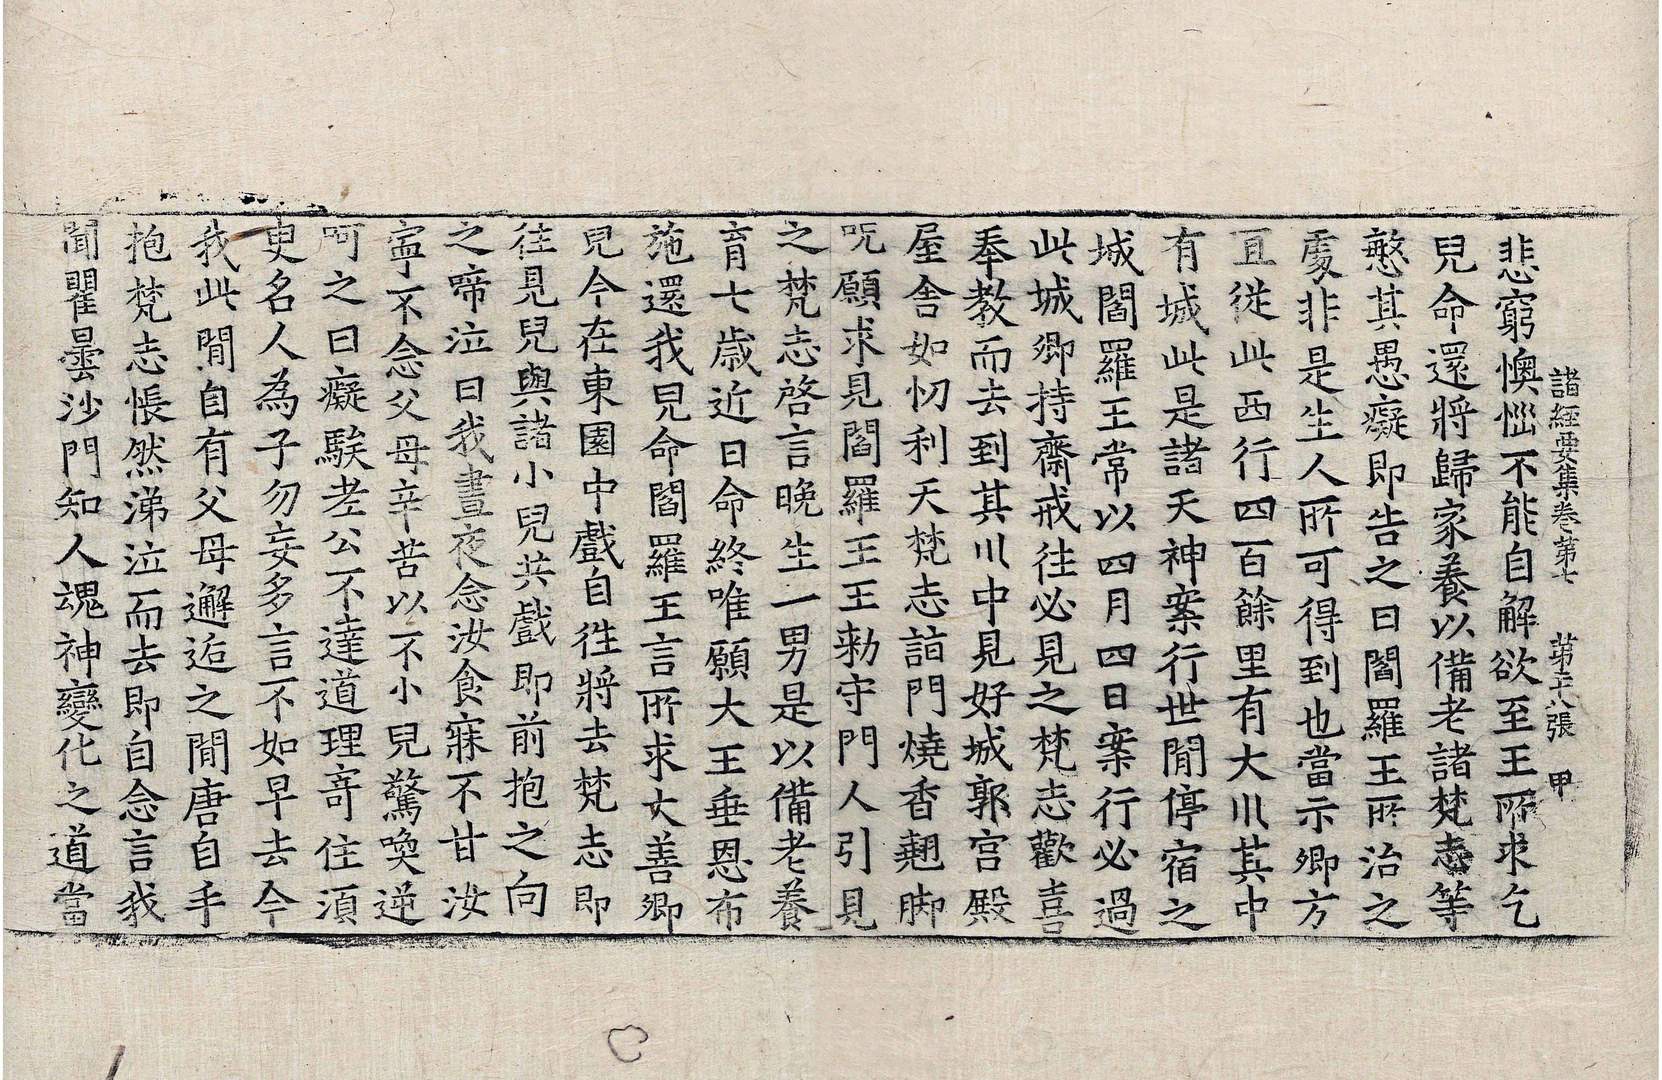 諸經要集卷第七　第二八張　甲
悲窮懊惱不能自解欲至王所求乞
兒命還將歸家養以備老諸梵志等
愍其愚癡即告之曰閻羅王所治之
處非是生人所可得到也當示卿方
宜從此西行四百餘里有大川其中
有城此是諸天神案行世閒停宿之
城閻羅王常以四月四日案行必過
此城卿持齋戒往必見之梵志歡喜
奉教而去到其川中見好城郭宮殿
屋舍如忉利天梵志詣門燒香翹脚
呪願求見閻羅王王勑守門人引見
之梵志啓言晚生一男是以備老養
育七歲近日命終唯願大王垂恩布
施還我兒命閻羅王言所求大善卿
兒今在東園中戲自往將去梵志即
往見兒與諸小兒共戲即前抱之向
之啼泣曰我晝夜念汝食寐不甘汝
寧不念父母辛苦以不小兒驚喚逆
呵之曰癡騃老公不達道理寄住須
臾名人為子勿妄多言不如早去今
我此閒自有父母邂逅之閒唐自手
抱梵志悵然涕泣而去即自念言我
聞瞿曇沙門知人魂神變化之道當